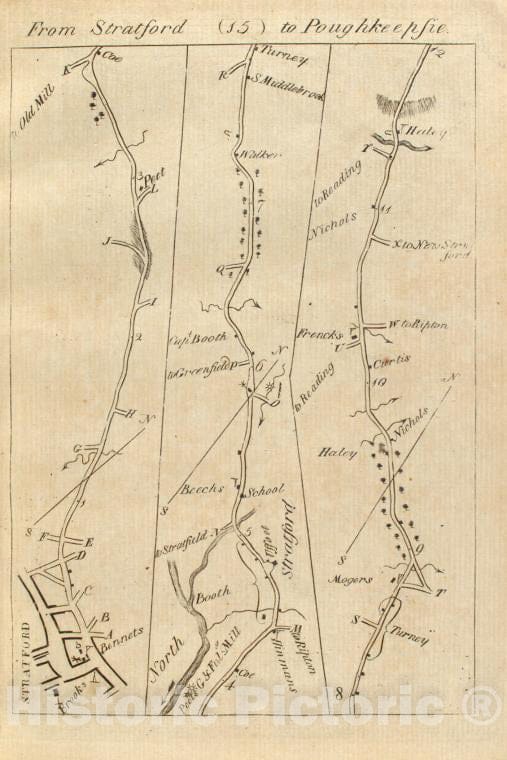 From Stratford (15) to Poughkeepsie.
K
Coe
to Old Mill
3
Peet
L
J
I
2
H
N
G
1
S
F
E
D
C
B
A
Bennets
STRATFORD
Brooks
Turney
R
S. Middlebrook
Walker
7
Q
Capt. Booth
N
to Greenfield
P
6
O
Beechs
School
S
to Stratfield
N
5
North Stratford
Booth
M
to Ripton
Hinmans
Coe
4
12
Haley
Y
to Reading
Nichols
11
X to New Stratford
Frencks
W to Ripton
U
Curtis
10
to Reading
N
Nichols
Haley
S
9
Mogers
V
T
S
Turney
8
Historic Pictoric ®